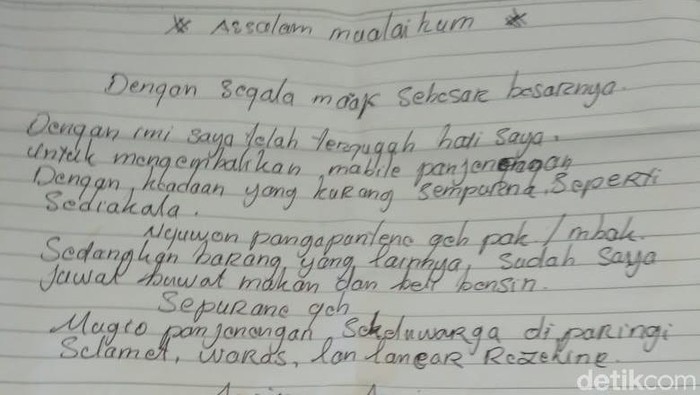 * Assalam mualaikum *
Dengan segala maaf sebesar besarnya.
Dengan ini saya telah tergugah hati saya.
Untuk mengembalikan, mabile panjenengan
Dengan, keadaan yang kurang sempurna, seperti
Sediakala.
Nyuwon pangapuntene geh pak / mbak.
Sedangkan barang yang lainya, sudah saya
Jawal buwat makan dan beli bensin.
Sepurane geh
Mugro panjenengan sekeluwarga di paringi
Selamet, waras, lan lancar Rezekine.
detikcom